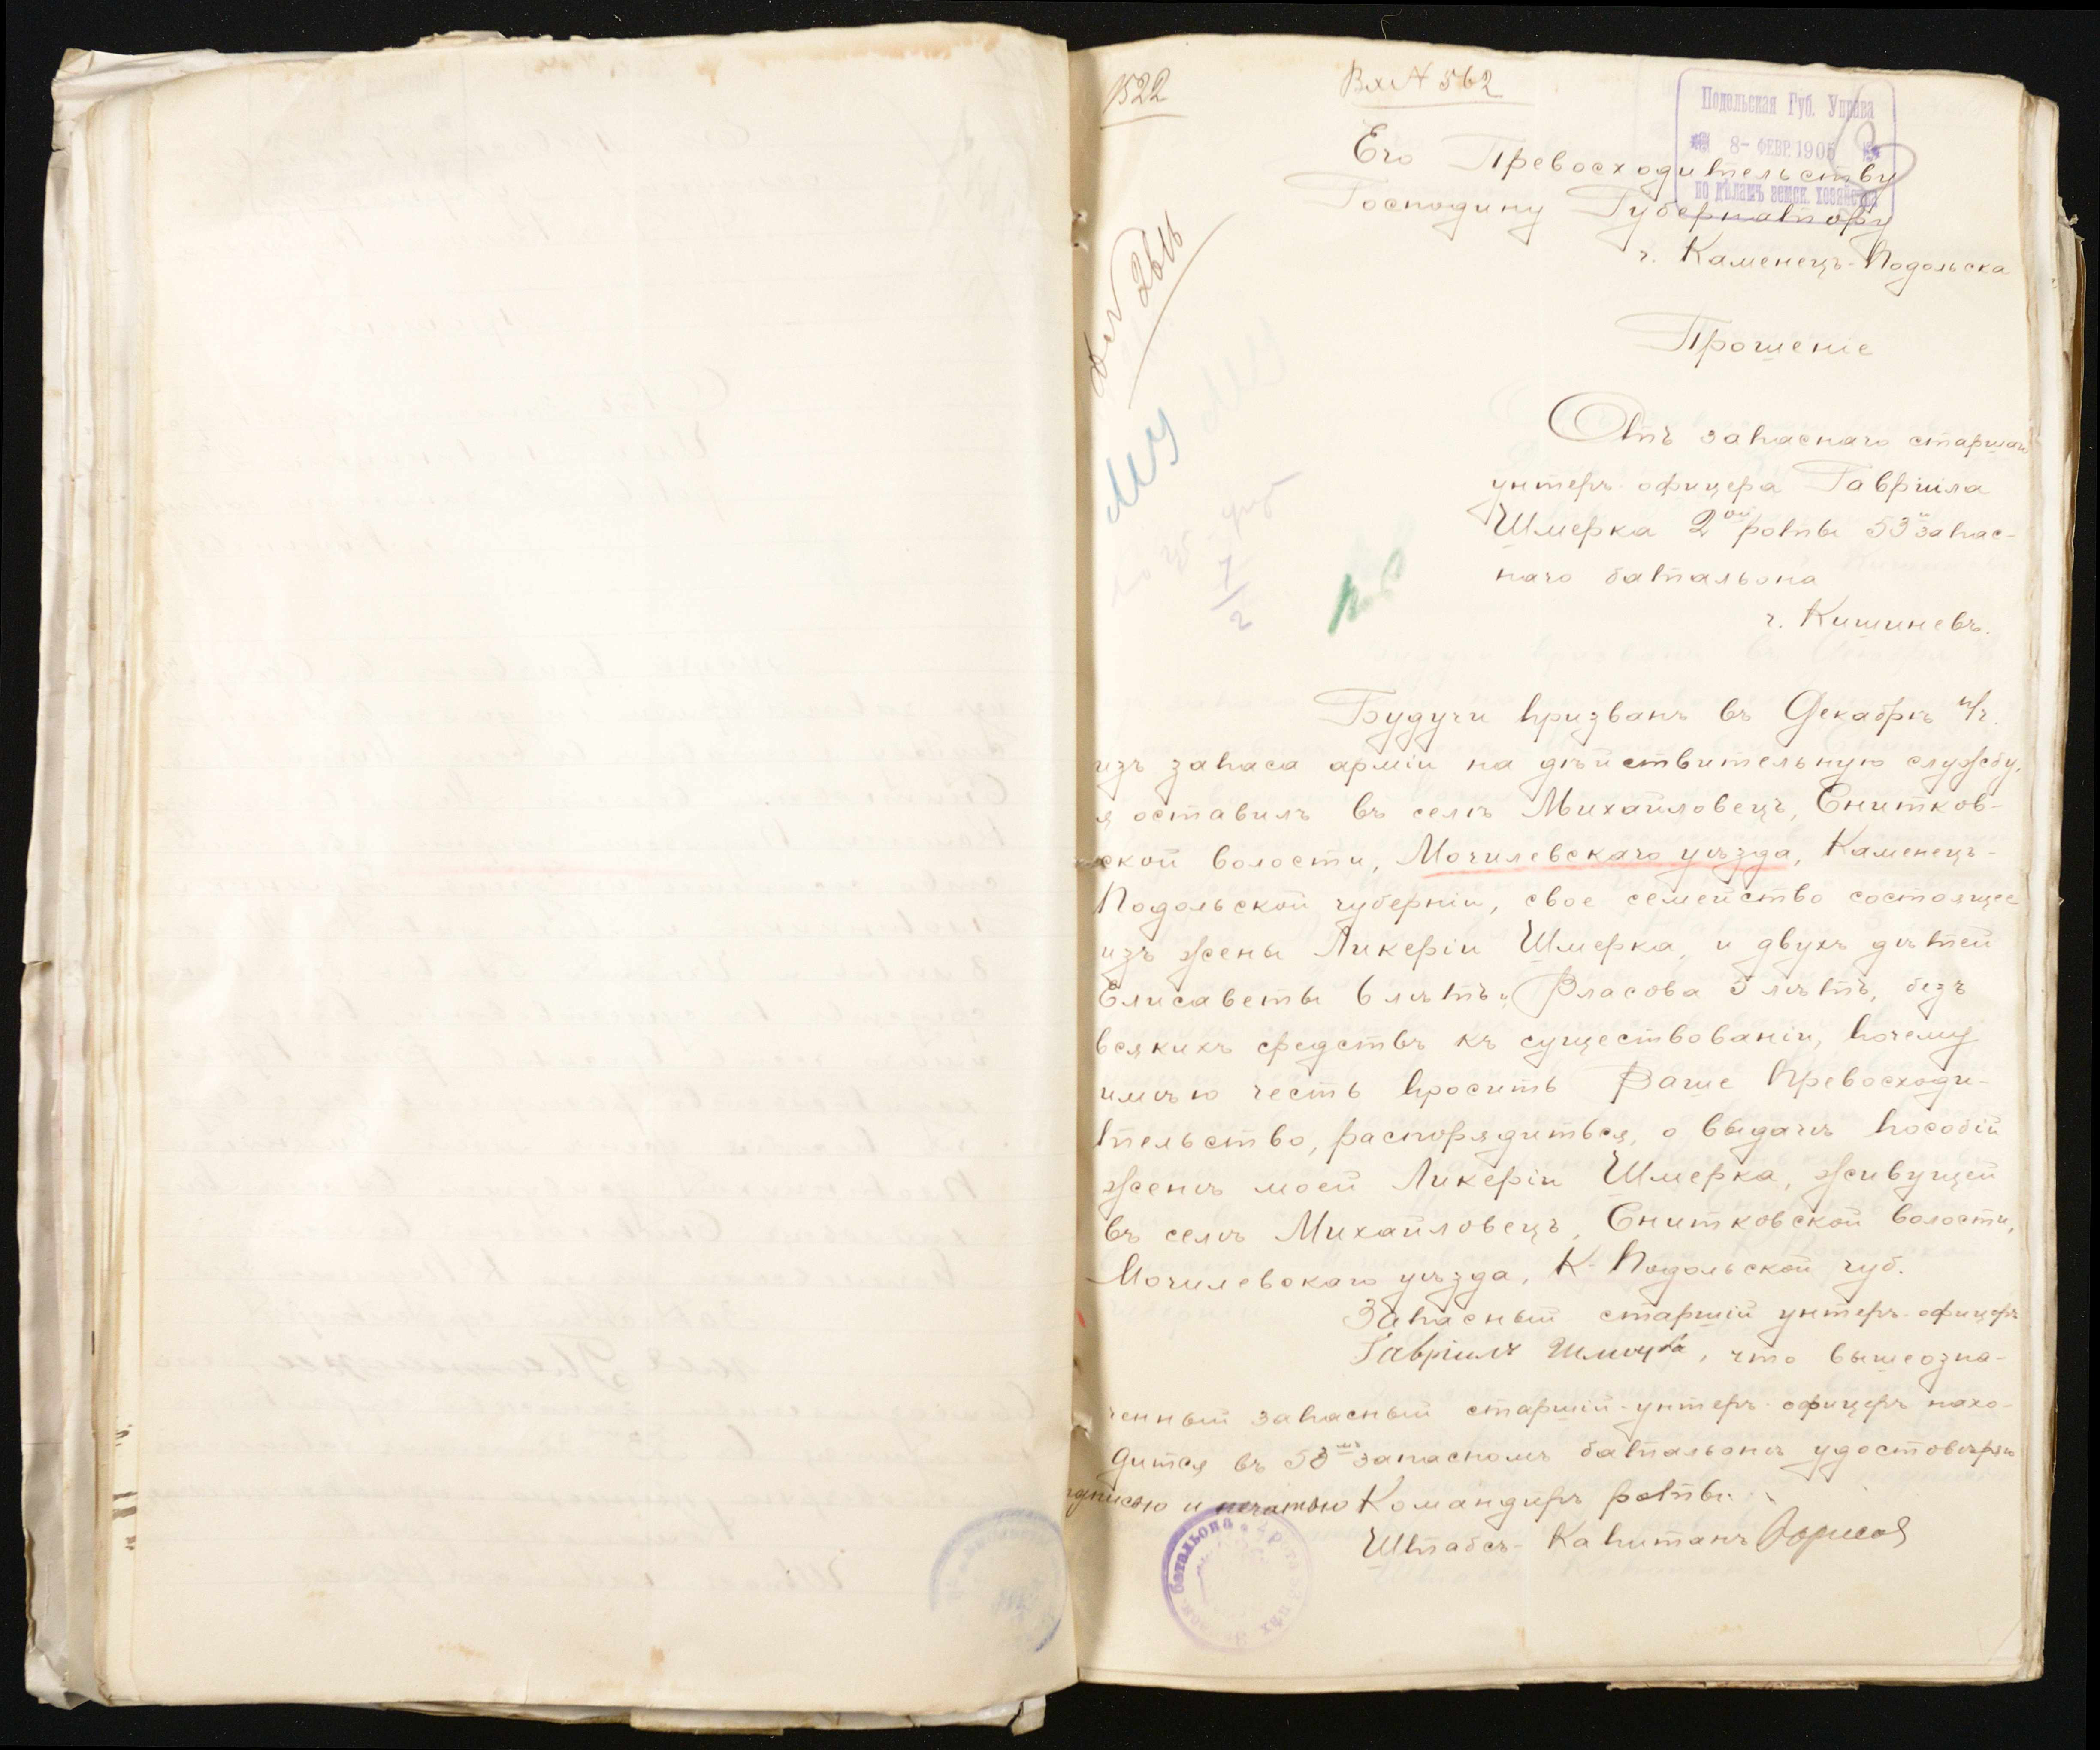 1522
Вх № 562
Подольская Губ. Управа
8- ФЕВР. 1905
по дѣламъ земск. хозяйства
Его Превосходительству
Господину Губернатору
г. Каменецъ-Подольска
Прошеніе
Отъ запаснаго старшаго
унтеръ-офицера Гавріила
Шмерка 2ой роты 53го запас-
наго батальона
г. Кишиневъ.
Будучи призванъ въ Декабрѣ п/г.
изъ запаса арміи на дѣйствительную службу,
я оставилъ въ селѣ Михайловецъ, Снитков-
ской волости, Могилевскаго уѣзда, Каменецъ-
Подольской губерніи, свое семейство состоящее
изъ жены Ликеріи Шмерка, и двухъ дѣтей
Елисаветы 6 лѣтъ и Власова 3 лѣтъ, безъ
всякихъ средствъ къ существованіи, почему
имѣю честь просить Ваше Превосходи-
тельство, распорядиться, о выдачѣ пособій
женѣ моей Ликеріи Шмерка, живущей
въ селѣ Михайловецъ, Снитковской волости,
Могилевскаго уѣзда, К-Подольской губ.
Запасный старшій унтеръ-офицеръ
Гавріилъ Шмерка, что вышеозна-
ченный запасный старшій-унтеръ-офицеръ нахо-
дится въ 53мъ запасномъ батальонѣ удостовѣряю
подписью и печатью Командиръ роты
Штабсъ-Капитанъ